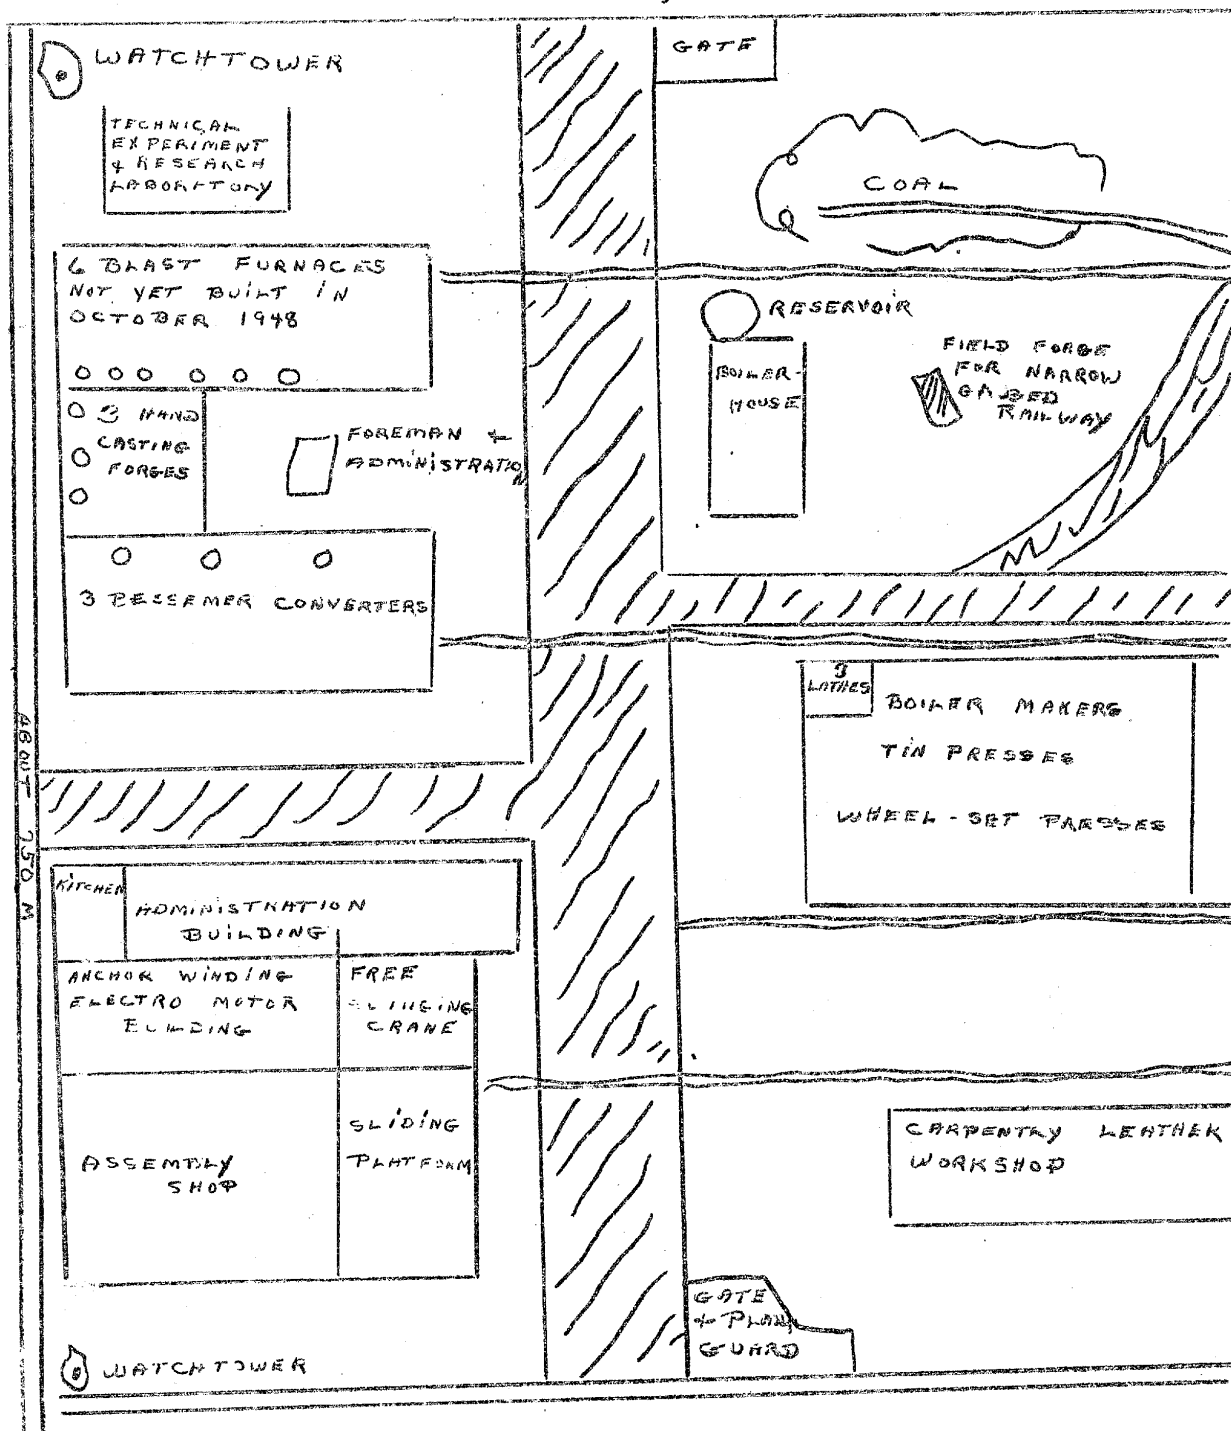 WATCHTOWER
GATE
TECHNICAL
EXPERIMENT
& RESEARCH
LABORATORY
COAL
6 BLAST FURNACES
NOT YET BUILT IN
OCTOBER 1948
RESERVOIR
BOILER-
HOUSE
FIELD FORGE
FOR NARROW
GAUGED
RAILWAY
3 HAND
CASTING
FORGES
FOREMAN &
ADMINISTRATION
3 BESSEMER CONVERTERS
3
LATHES
BOILER MAKERS
TIN PRESSES
WHEEL-SET PRESSES
ABOUT 750 M
KITCHEN
ADMINISTRATION
BUILDING
ANCHOR WINDING
ELECTRO MOTOR
BUILDING
FREE
CRANE
ASSEMBLY
SHOP
SLIDING
PLATFORM
CARPENTRY LEATHER
WORKSHOP
GATE
& PLANT
GUARD
WATCHTOWER